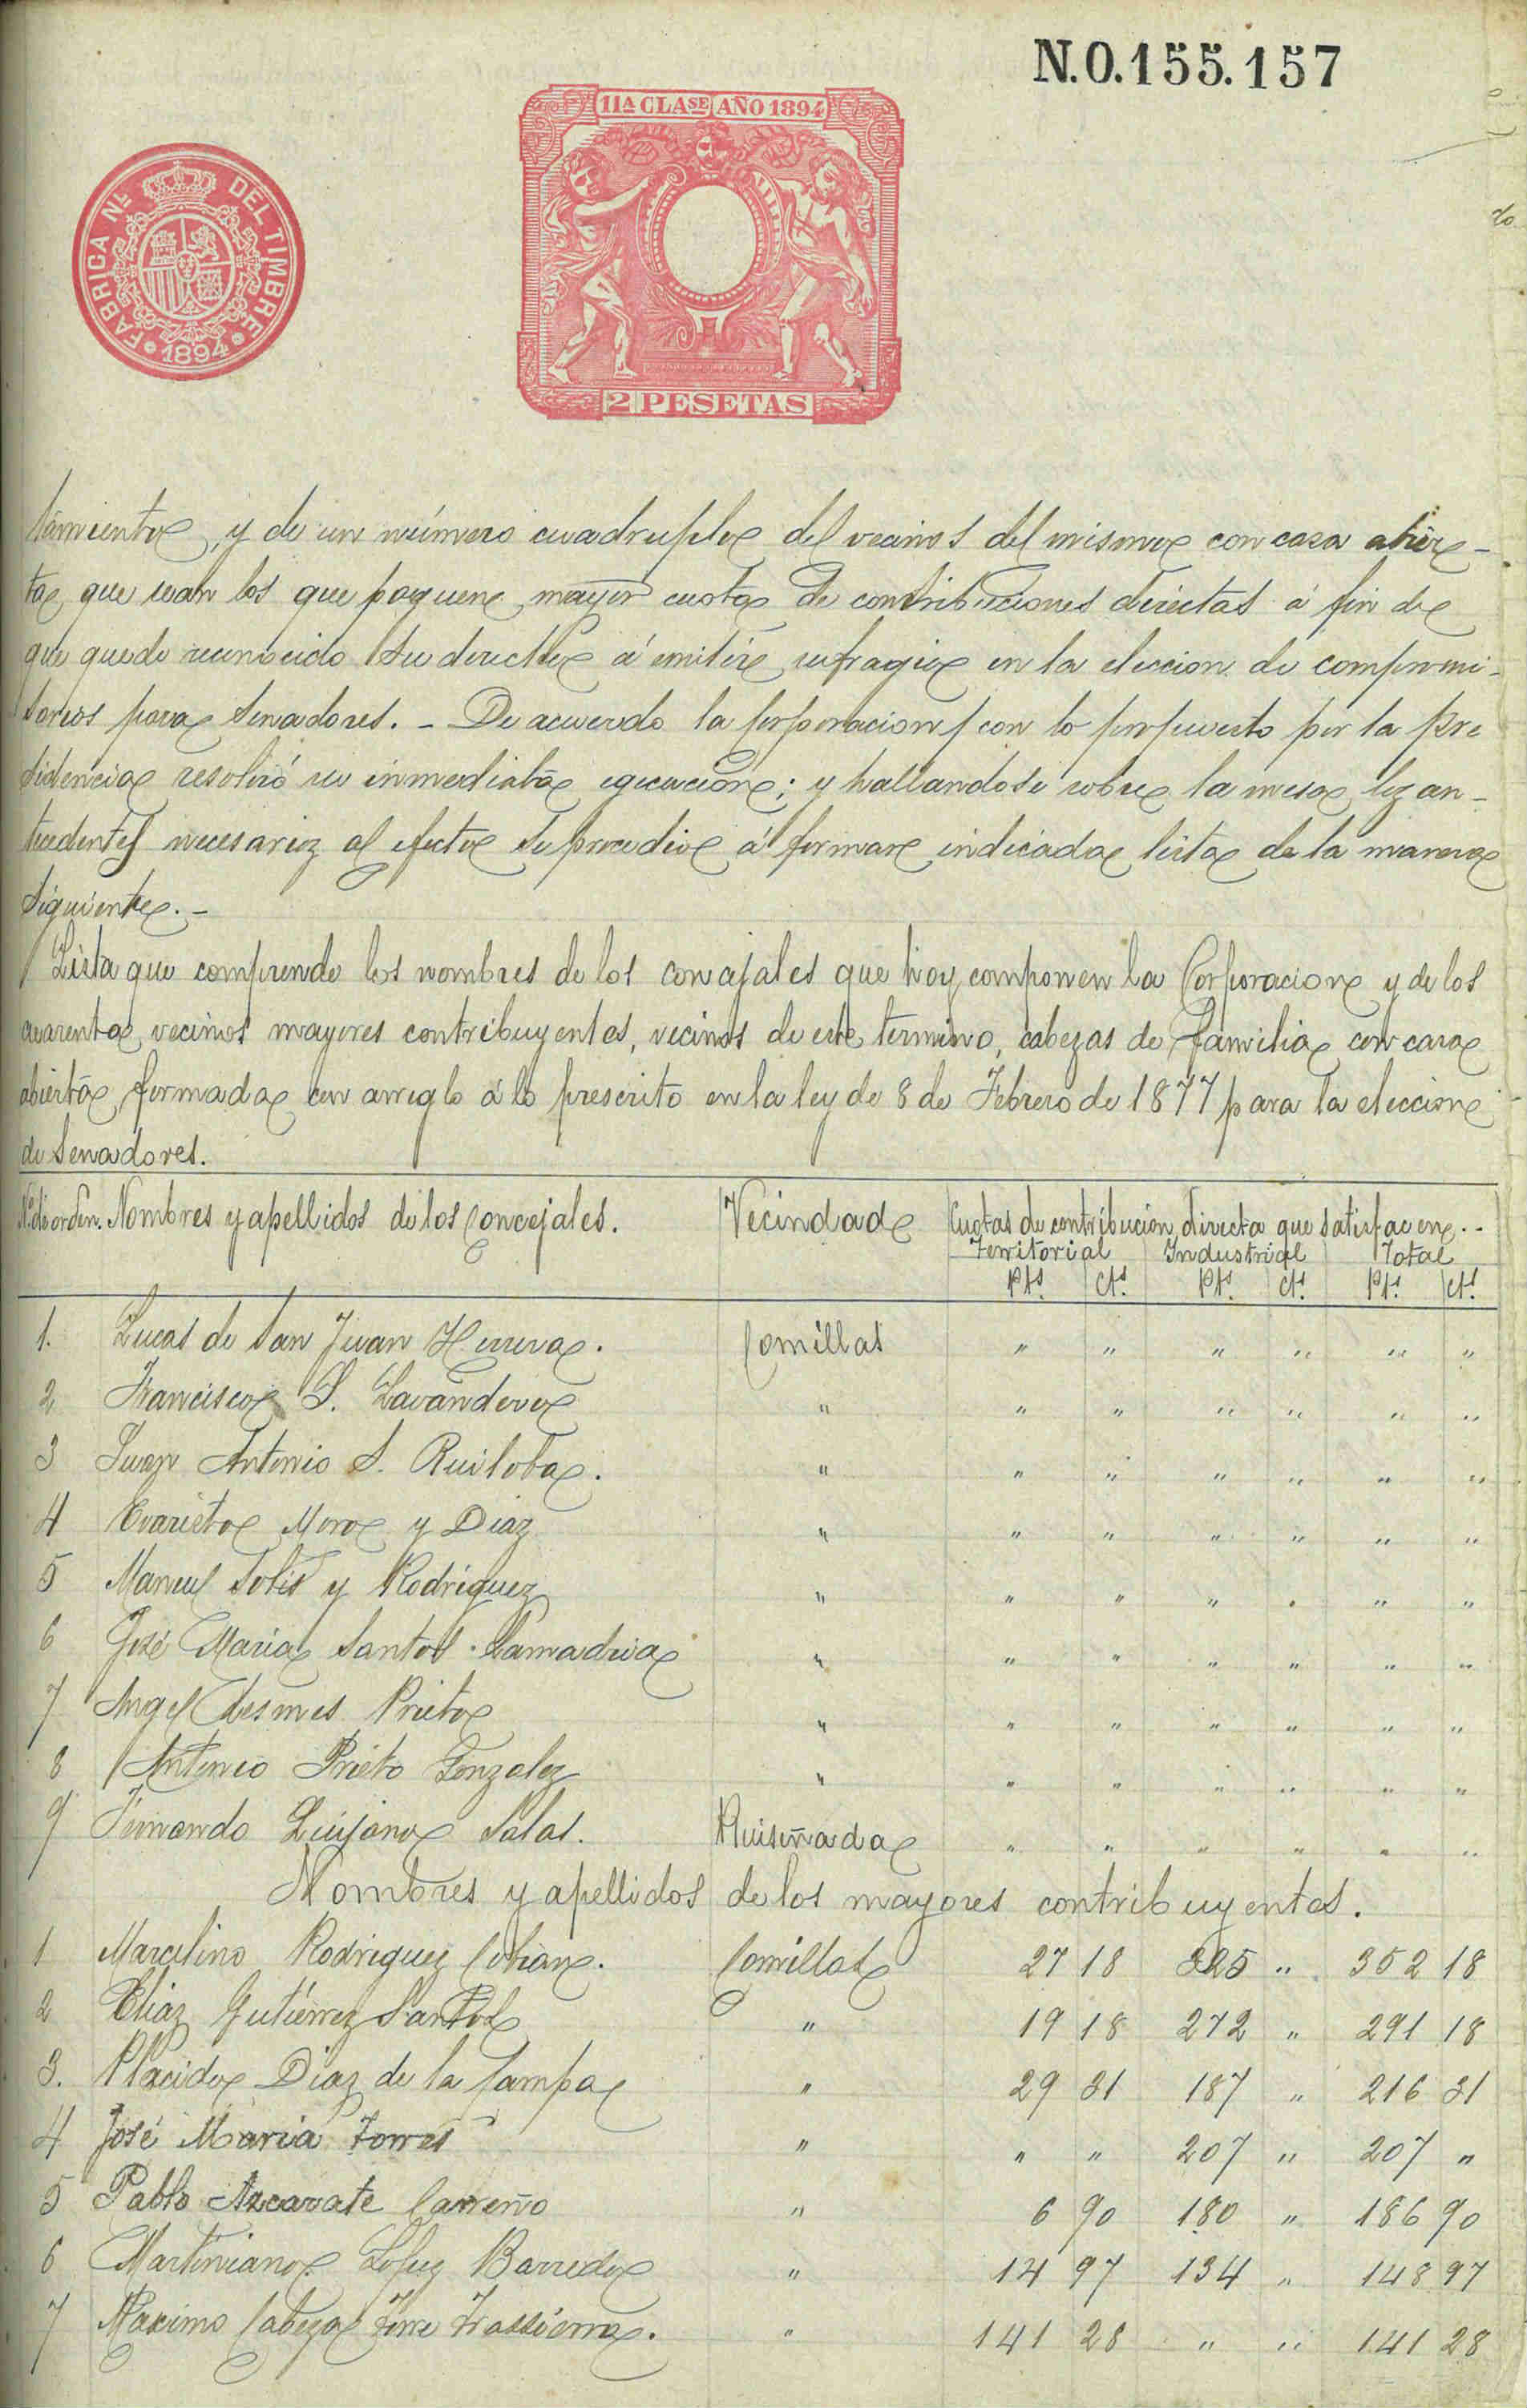 N.0.155.157
11A CLASE AÑO 1894
FABRICA NL DEL TIMBRE
1894
2 PESETAS
tamiento, y de un número cuadruplo del vecinos del mismo con casa abier-
ta, que sean los que paguen mayor cuota de contribuciones directas á fin de
que quede reconocido su derecho á emitir sufragio en la eleccion de compromi-
sarios para Senadores. - De acuerdo la Corporacion con lo propuesto por la Pre
sidencia resolvió su inmediata egecucion; y hallandose sobre la mesa los an-
tecedentes necesarios al efecto se procedio á formar indicada lista de la manera
siguiente. -
Lista que comprende los nombres de los concejales que hoy componen la Corporacion y de los
cuarenta vecinos mayores contribuyentes, vecinos de este termino, cabezas de familia con casa
abierta, formada con arreglo á lo prescrito en la ley de 8 de Febrero de 1877 para la eleccion
de Senadores.
No. de orden. Nombres y apellidos de los Concejales. Vecindad Cuotas de contribucion directa que satisfacen. -
Territorial Industrial Total
Pts. Cts. Pts. Cts. Pts. Cts.
1. Lucas de San Juan Herrera. Comillas " " " " " "
2 Francisco S. Lavandero " " " " " " "
3 Juan Antonio S. Ruiloba. " " " " " " "
4 Evaristo Moro y Diaz " " " " " " "
5 Manuel Solis y Rodriguez " " " " " " "
6 José Maria Santos Lamadriz " " " " " " "
7 Angel Prieto " " " " " " "
8 Antonio Prieto Gonzalez " " " " " " "
9 Fernando Quijano Salas. Ruiseñada " " " " " "
Nombres y apellidos de los mayores contribuyentes.
1 Marcelino Rodriguez Cohian. Comillas 27 18 325 " 352 18
2 Elias Gutiérrez Santos " 19 18 272 " 291 18
3. Placido Diaz de la Campa " 29 31 187 " 216 31
4 José Maria Torres " " " 207 " 207 "
5 Pablo Azcarate Carreño " 6 90 180 " 186 90
6 Martiniano Lopez Barredo " 14 97 134 " 148 97
7 Maximo Cabeza Torre Trassierra. " 141 28 " " 141 28